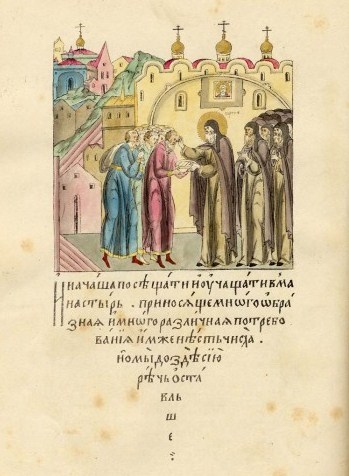 И начаша посѣщати и оучащати в ма
настырь . приносѧще многоѡбра
знаѧ и многоразличнаѧ потребо
ванїѧ имже нѣсть числа .
но мы до здѣ сїю
рѣчь оста
вль
ш
е :